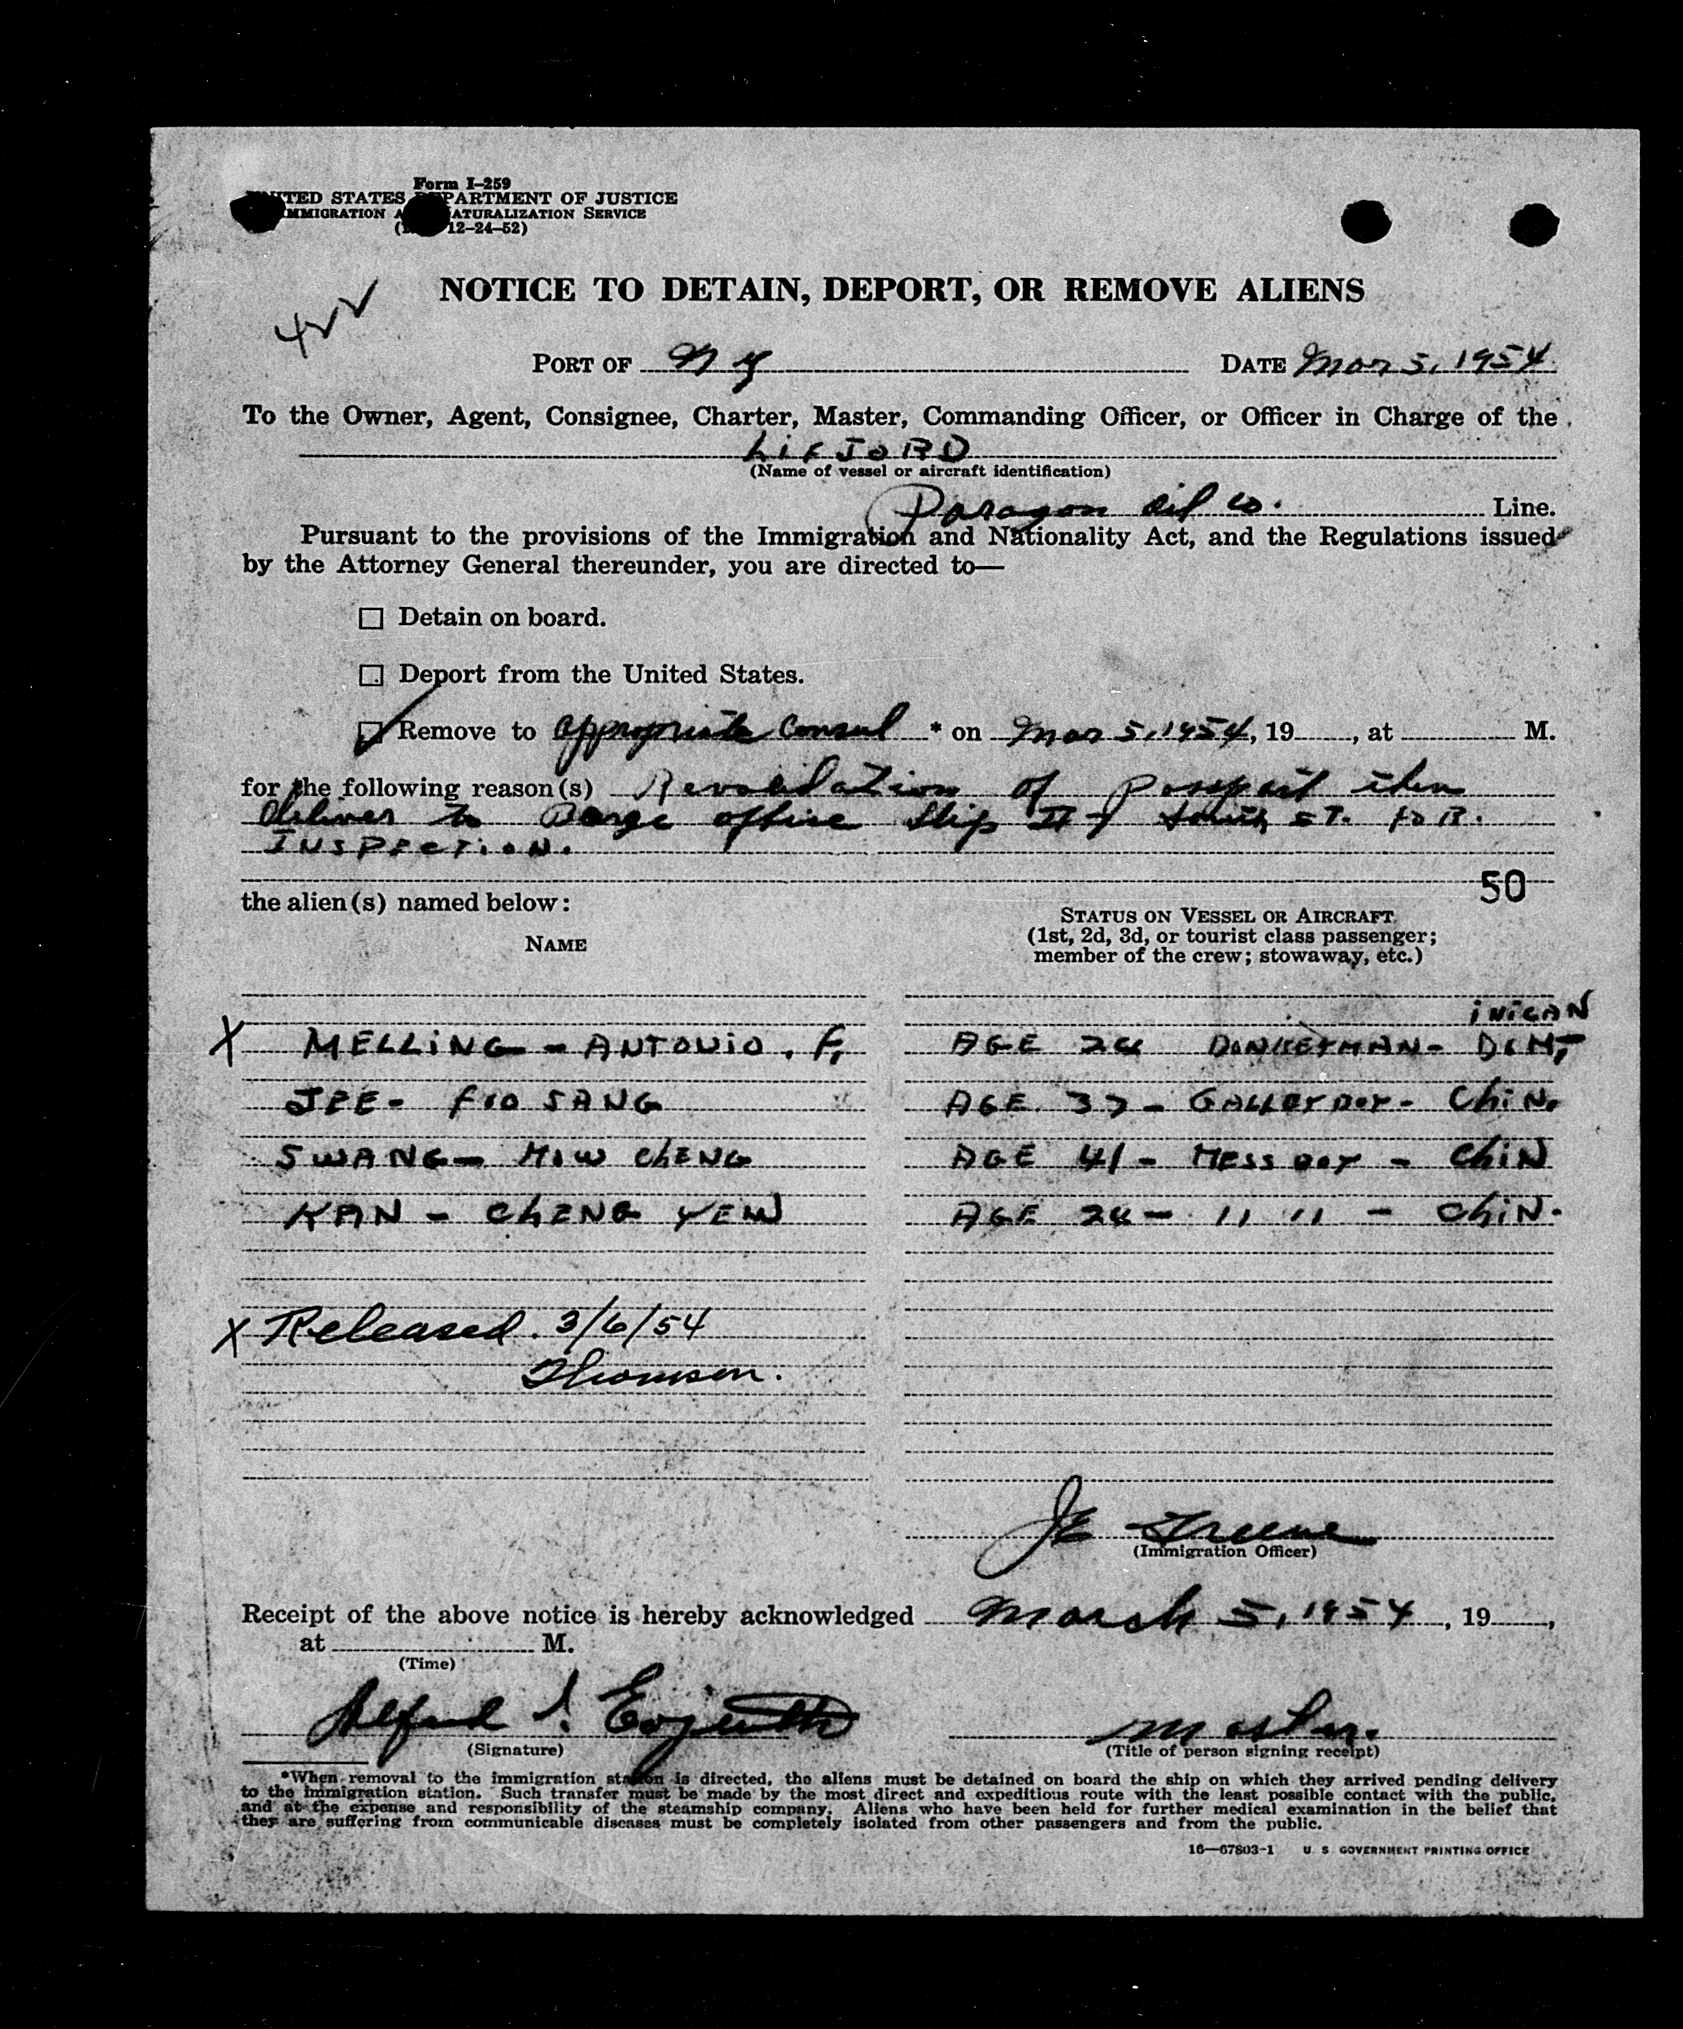 Form I-259
UNITED STATES DEPARTMENT OF JUSTICE
IMMIGRATION AND NATURALIZATION SERVICE
12-24-52)
NOTICE TO DETAIN, DEPORT, OR REMOVE ALIENS
4
PORT OF N Y DATE Mar 5, 1954
To the Owner, Agent, Consignee, Charter, Master, Commanding Officer, or Officer in Charge of the
LIFJORD
(Name of vessel or aircraft identification)
Paragon Oil Co. Line.
Pursuant to the provisions of the Immigration and Nationality Act, and the Regulations issued
by the Attorney General thereunder, you are directed to—
Detain on board.
Deport from the United States.
Remove to appropriate Consul * on Mar 5, 1954, 19, at M.
for the following reason(s) Revalidation of Passport then
deliver to Barge office Slip South ST. FOR
INSPECTION.
50
the alien(s) named below:
NAME
STATUS ON VESSEL OR AIRCRAFT
(1st, 2d, 3d, or tourist class passenger;
member of the crew; stowaway, etc.)
INICAN
X MELLING - ANTONIO. F. AGE 24 DONKEYMAN - DOM,
JEE - FOO SANG AGE 37 - GALLEYBOY - CHIN.
SWANG - HOW CHENG AGE 41 - MESSBOY - CHIN
KAN - CHENG YEW AGE 24 - 11 11 - CHIN.
X Released. 3/6/54
Thomson.
JE Greene
(Immigration Officer)
Receipt of the above notice is hereby acknowledged March 5, 1954, 19,
at M.
(Time)
Alfred Master.
(Signature) (Title of person signing receipt)
*When removal to the immigration station is directed, the aliens must be detained on board the ship on which they arrived pending delivery
to the immigration station. Such transfer must be made by the most direct and expeditious route with the least possible contact with the public,
and at the expense and responsibility of the steamship company. Aliens who have been held for further medical examination in the belief that
they are suffering from communicable diseases must be completely isolated from other passengers and from the public.
16—67803-1 U. S. GOVERNMENT PRINTING OFFICE